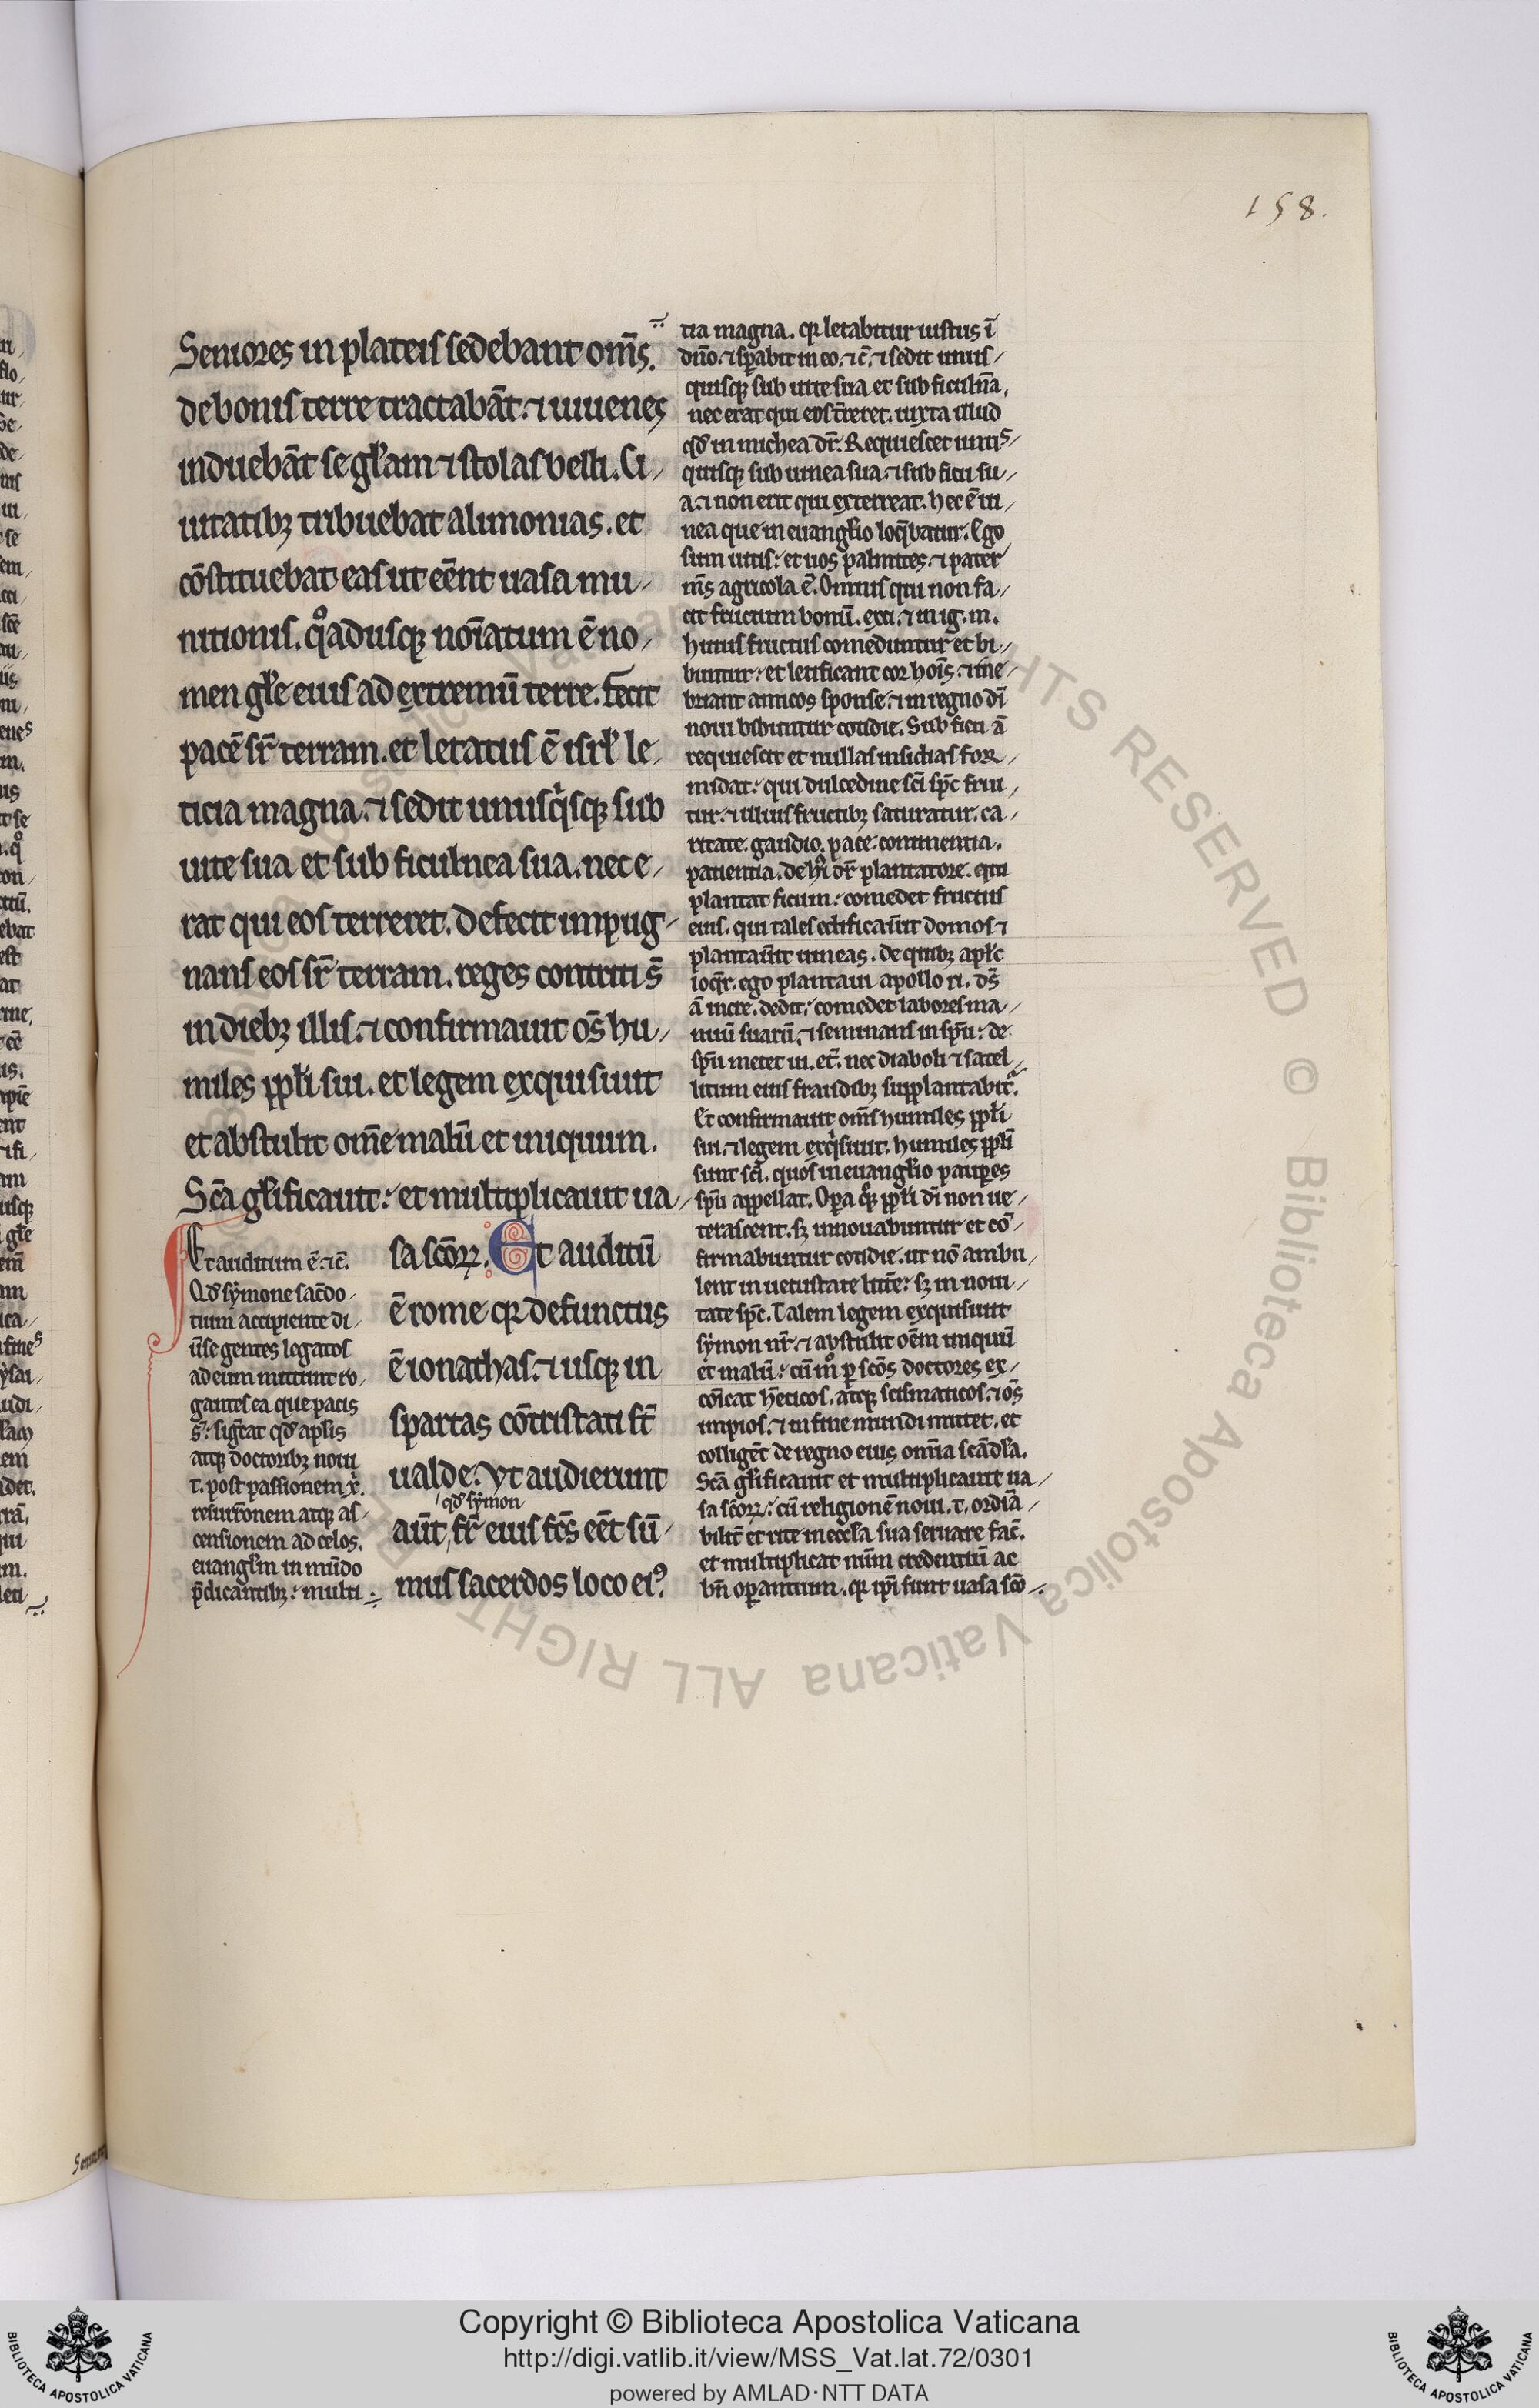 158.
Seniores in plateis sedebant om̄s.
de bonis terre tractabāt. ⁊ iuuenes
induebāt se gl̄am ⁊ stolas belli. Ci-
uitatibꝫ tribuebat alimonias. et
cōstituebat eas ut eēnt uasa mu-
nitionis. qͦadusqꝫ noīatum ē no-
men gl̄e eius ad extremū terre. fecit
pacē sr̄ terram. et letatus ē isrl̄ le-
ticia magna. ⁊ sedit unusqͥsqꝫ sub
uite sua et sub ficulnea sua. nec e-
rat qui eos terreret. defecit impug-
nans eos sr̄ terram. reges contriti s̄
in diebꝫ illis. ⁊ confirmauit os̄ hu-
miles ppl̄i sui. et legem exquisiuit
et abstulit om̄e malū et iniquum.
Sc̄a gl̄ificauit: et multiplicauit ua-
sa sc̄oꝝ. Et auditū
ē rome qꝛ defunctus
ē ionathas. ⁊ usqꝫ in
spartas cōtristati st̄
ualde. Vt audierunt
qd̄ symon
aūt, fr̄ eius fc̄s eēt sū-
mus sacerdos loco eiꝰ.
Et auditum ē. ⁊c̄.
Qd̄ symone sac̄do-
tium accipiente di-
ūse gentes legatos
ad eum mittunt ro-
gantes ea que pacis
s̄: sigt̄at qd̄ aplis
atqꝫ doctoribꝫ noui
t. post passionem x̄.
resurr̄onem atqꝫ as-
censionem ad celos.
euangl̄m in mūdo
p̄dicantibꝫ: multi
tia magna. qꝛ letabitur iustus ī
dn̄o. ⁊ sꝑabit in eo. ⁊c̄. ⁊ sedit unus-
quisqꝫ sub uite sua et sub ficuln̄a.
nec erat qui eos t̄reret. iuxta illud
qd̄ in michea dr̄. Requiescet unus-
quisqꝫ sub uinea sua. ⁊ sub ficu su-
a. ⁊ non erit qui exterreat. hec ē ui-
nea que in euangl̄io loq̄batur. Ego
sum uitis: et uos palmites. ⁊ pater
m̄s agricola ē. Omnis qui non fa-
cit fructum bonū. exci. ⁊ in ig. m.
huius fructus comeduntur et bi-
buntur: et letificant cor hoīs. ⁊ ine-
briant amicos sponse. ⁊ in regno dī
noui bibuntur cotidie. Sub ficu ā
requiescit et nullas insidias for-
midat: qui dulcedine sc̄i sp̄c frui-
tur. ⁊ illius fructibꝫ saturatur. ca-
ritate. gaudio. pace. continentia.
patientia. de hͦ dr̄ plantatore. qui
plantat ficum: comedet fructus
eius. qui tales edificaūit domos ⁊
plantaūit uineas. de quibꝫ apl̄c
loq̄r. ego plantaui apollo ri. ds̄
ā incre. dedit: comedet labores ma-
nuū suarū. ⁊ seminans in sp̄u: de
sp̄u metet ui. et̄. nec diaboli ⁊ satel-
litum eius fraudibꝫ supplantabit̄.
Et confirmauit om̄s humiles ppl̄i
sui. ⁊ legem exqͥsiuit. humiles ppl̄i
sunt sc̄i. quos in euangl̄io pauꝑes
sp̄u appellat. Oꝑa qͦꝫ ppl̄i dī non ue-
terascent. sꝫ innouabuntur et cō-
firmabuntur cotidie. ut nō ambu-
lent in uetustate litt̄e: sꝫ in noui-
tate sp̄c. Talem legem exquisiuit
symon nr̄. ⁊ abstulit oēm iniquū
et malū: cū mͦ ꝑ sc̄os doctores ex-
cōicat h̄eticos. atqꝫ scismaticos. ⁊ os̄
impios. ⁊ in fine mundi mittet. et
colligēt de regno eius omīa scādl̄a.
Sc̄a gl̄ificauit et multiplicauit ua-
sa sc̄oꝝ: cū religionē noui. t. ordīa-
bilit̄ et rite in eccl̄a sua seruare fac̄.
et multiplicat nūm credentiū ac
bn̄ oꝑantium. qꝛ ip̄i sunt uasa sc̄o-
ALL RIGHTS RESERVED © Biblioteca Apostolica Vaticana
Copyright © Biblioteca Apostolica Vaticana
http://digi.vatlib.it/view/MSS_Vat.lat.72/0301
powered by AMLAD·NTT DATA
BIBLIOTECA APOSTOLICA VATICANA
BIBLIOTECA APOSTOLICA VATICANA